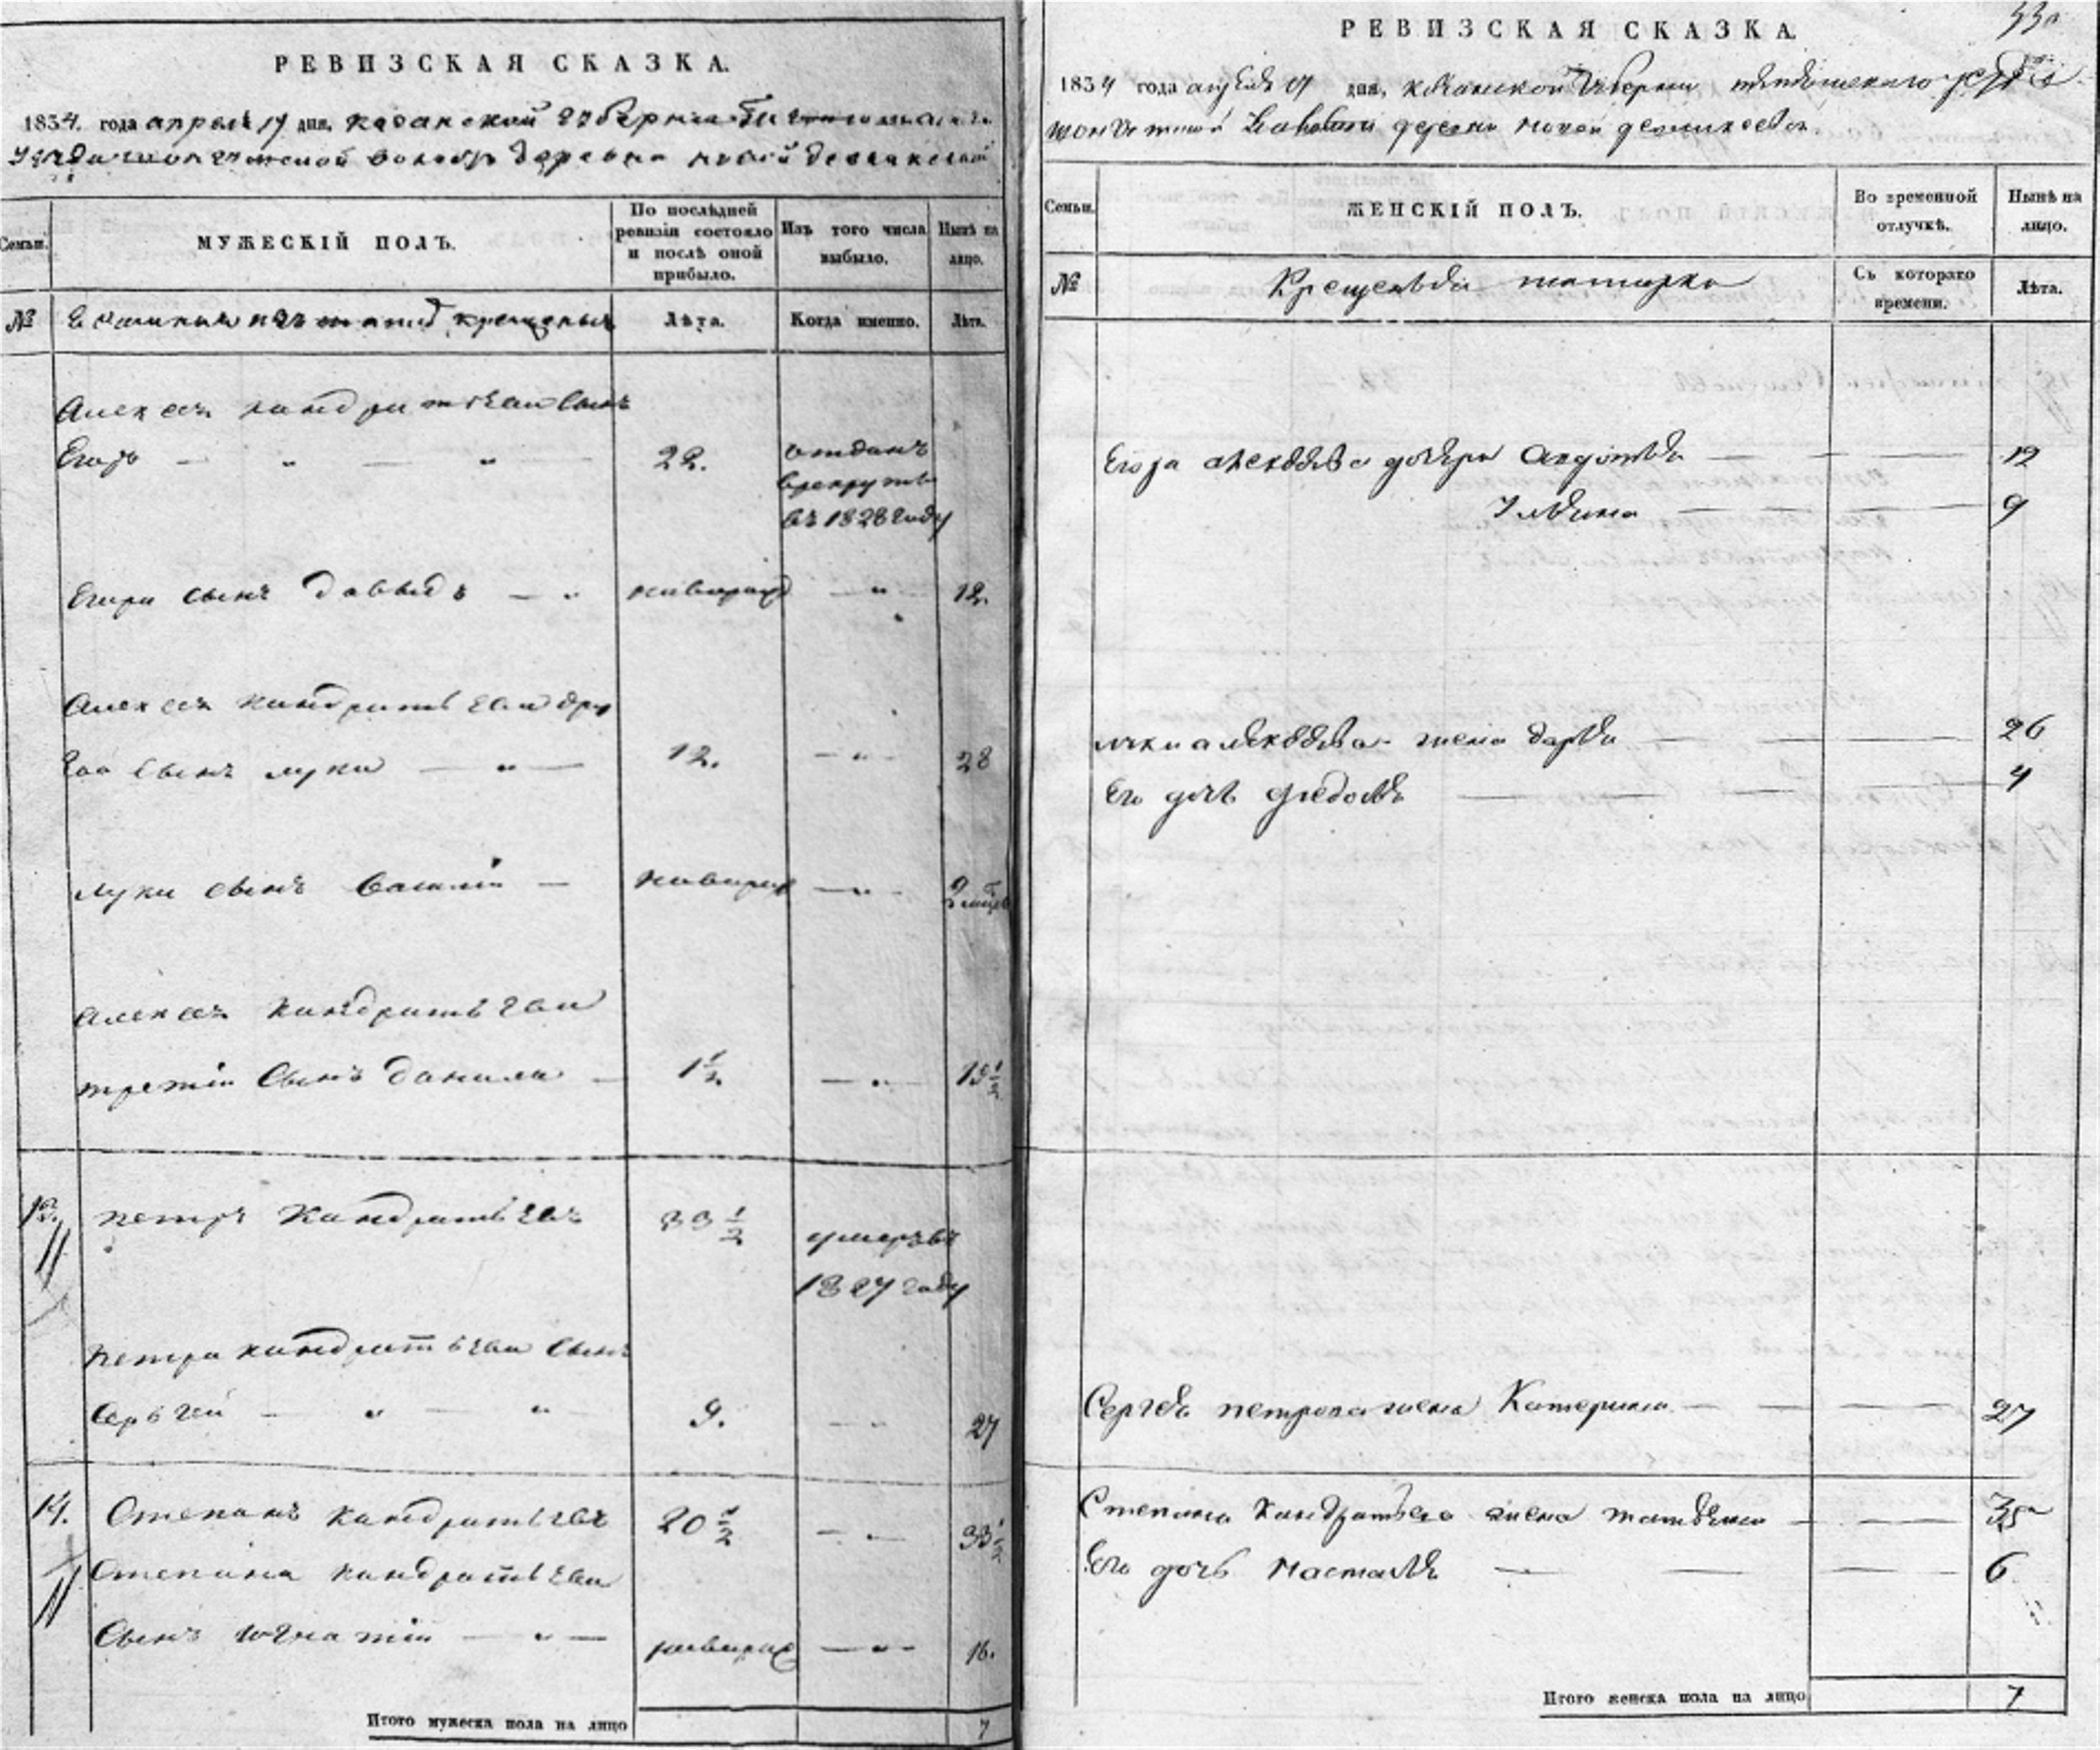 РЕВИЗСКАЯ СКАЗКА.
1834. года апреля 17 дня, казанской губернии
уезда волости деревни новой
Семьи.
МУЖЕСКІЙ ПОЛЪ.
По послѣдней ревизіи состояло и послѣ оной прибыло.
Изъ того числа выбыло.
Нынѣ на лицо.
№
изъ татар крещеных
Лѣта.
Когда именно.
Лѣта.
Алексея кандратьева сынъ
Егоръ — „ — „ 22. отданъ
в рекруты
въ 1828 году
Егора сынъ давыдъ — „ новорож — „ — 12.
Алексея кандратьева дру
гой сынъ лука — „ — 12. — „ — 28
луки сынъ василiй — новорож — „ —
Алексея кандратьева
третiй сынъ данила — 1 1/2 — „ — 19 1/2
петръ кандратьевъ 33 1/2 умеръ въ
1827 году
петра кандратьева сынъ
Сергей — „ — „ 9. — 27
14. Степанъ кандратьевъ 20 1/2 — „ — 33 1/2
Степана кандратьева
сынъ игнатiй — „ — новорож — „ — 16.
Итого мужеска пола на лицо 7
РЕВИЗСКАЯ СКАЗКА.
1834 года апреля 17 дня, казанской губернии уезда
деревни новой
Семьи.
ЖЕНСКІЙ ПОЛЪ.
Во временной отлучкѣ.
Нынѣ на лицо.
№
татарка
Съ котораго времени.
Лѣта.
Егора алексеева дочери авдотья — — — 12
Ульяна — — — 9
луки алексеева жена дарья — — — 26
Его дочь федосья — — — 4
Сергея петрова жена Катерина — — — 27
Степана Кандратьева жена татьяна — — 35
Его дочь Настасья — — — 6
Итого женска пола на лицо 7